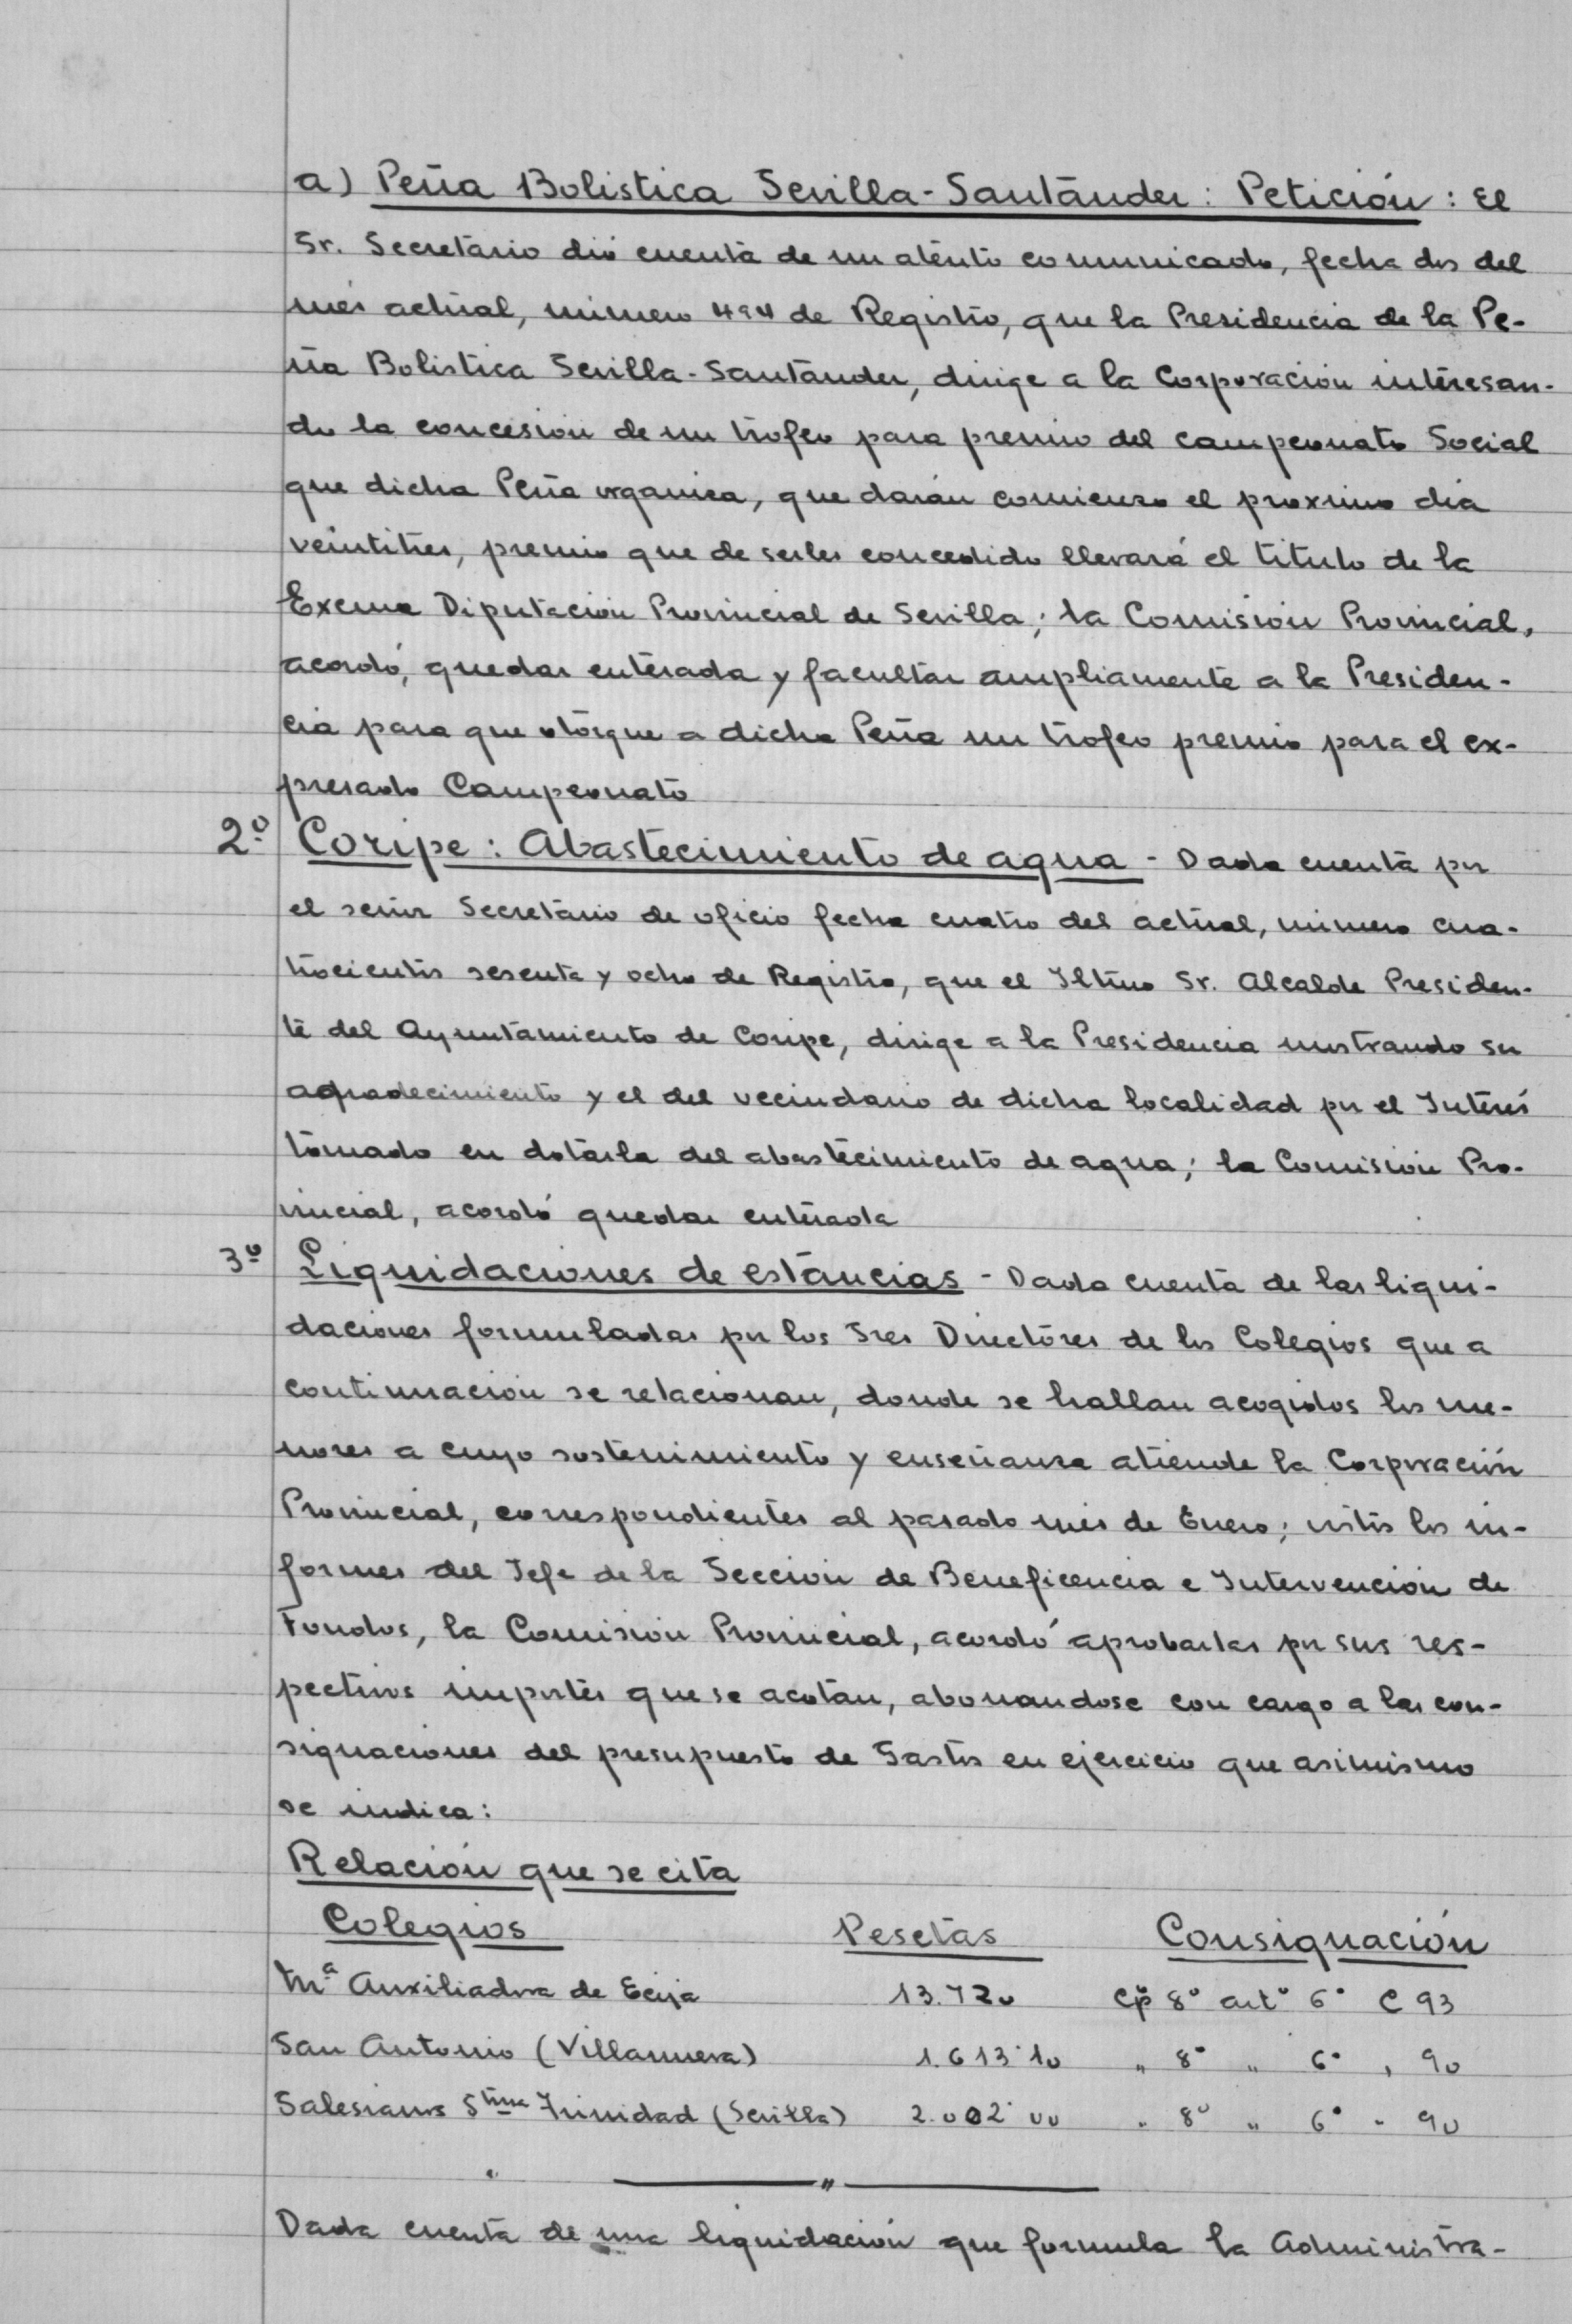 a) Peña Bolistica Sevilla-Santander: Petición: El
Sr. Secretario dió cuenta de un atento comunicado, fecha dos del
més actual, número 494 de Registro, que la Presidencia de la Pe-
ña Bolistica Sevilla-Santander, dirige a la Corporación interesan-
do la concesión de un trofeo para premio del campeonato Social
que dicha Peña organiza, que darán comienzo el proximo día
veintitres, premio que de serles concedido llevará el titulo de la
Excma Diputación Provincial de Sevilla; la Comisión Provincial,
acordó, quedar enterada y facultar ampliamente a la Presiden-
cia para que otorgue a dicha Peña un trofeo premio para el ex-
presado Campeonato
2º Coripe: Abastecimiento de agua - Dada cuenta por
el señor Secretario de oficio fecha cuatro del actual, número cua-
trocientos sesenta y ocho de Registro, que el Iltmo Sr. Alcalde Presiden-
te del Ayuntamiento de Coripe, dirige a la Presidencia mostrando su
agradecimiento y el del vecindario de dicha localidad por el Interés
tomado en dotarla del abastecimiento de agua; la Comisión Pro-
vincial, acordó quedar enterada
3º Liquidaciones de estancias - Dada cuenta de las liqui-
daciones formuladas por los Sres Directores de los Colegios que a
continuación se relacionan, donde se hallan acogidos los me-
nores a cuyo sostenimiento y enseñanza atiende la Corporación
Provincial, correspondientes al pasado més de Enero; vistos los in-
formes del Jefe de la Sección de Beneficencia e Intervención de
Fondos, la Comisión Provincial, acordó aprobarlas por sus res-
pectivos importes que se acotan, abonandose con cargo a las con-
signaciones del presupuesto de Gastos en ejercicio que asimismo
se indica:
Relación que se cita
Colegios Pesetas Consignación
Mª Auxiliadora de Ecija 13.720 Cpº 8º artº 6º C 93
San Antonio (Villanueva) 1.613'10 " 8º " 6º , 90
Salesianos Stma Trinidad (Sevilla) 2.002'00 " 8º " 6º " 90
"
Dada cuenta de una liquidación que formula la Administra-